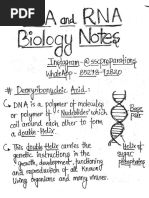 DNA and RNA
Biology Notes
Instagram - @sscpreparations
WhatsApp -
# Deoxyribonucleic Acid :-
DNA is a polymer of molecules
or polymer of 'Nucleotides' which
coil around each other to form
a double-Helix.
Base
pair
This double Helix carries the
genetic instructions in the
growth, development, functioning
and reproduction of all known
living organisms and many viruses.
Helix of
sugar
phosphates